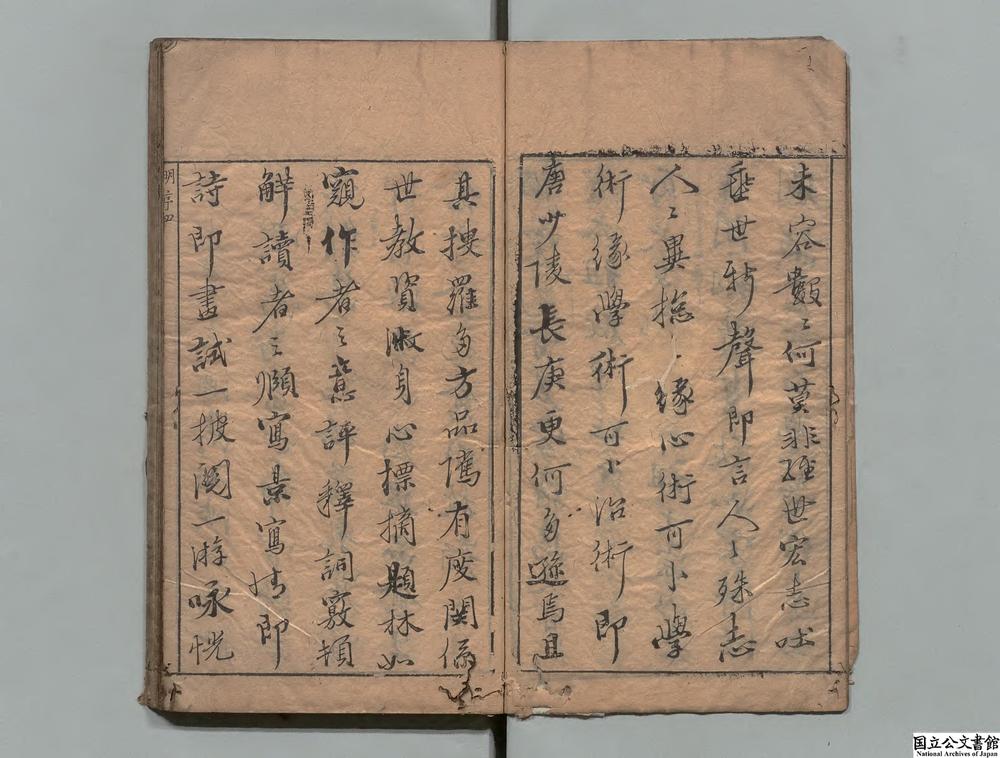 未容數〻何莫非経世宏志吐
垂世新聲即言人〻殊志
人〻異揔〻緣心術可卜學
術緣學術可卜治術即
唐少陵長庚更何多遜焉且
其搜羅多方品隲有度関係
世教資淑身心標摘題林如
窺作者之意評釋詞竅頓
觧讀者之頤寫景寫情即
詩即畫試一披閲一游咏恍
明 序 四
国立公文書館
National Archives of Japan